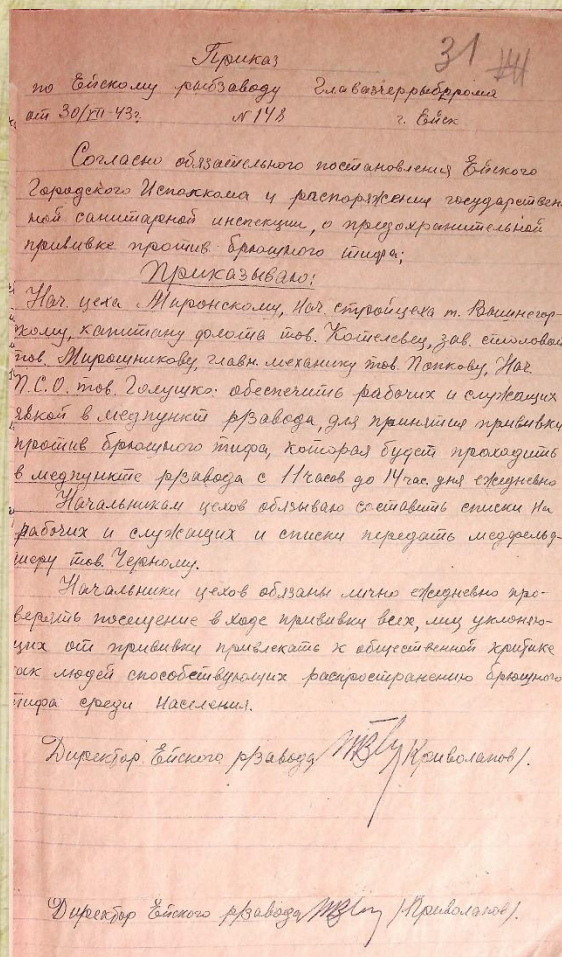 31
Приказ
по Ейскому рыбзаводу Главазчеррыбпрома
от 30/XII-43г. N 148 г. Ейск
Согласно обязательного постановления Ейского
Городского Исполкома и распоряжения государствен
ной санитарной инспекции, о предохранительной
прививке против брюшного тифа;
Приказываю:
Нач. цеха Миронскому, Нач. стройцеха т. Вишнегор-
скому, капитану флота тов. Котелевец, зав. столовой
тов. Мирошникову, главн. механику тов. Попкову, Нач.
П.С.О. тов. Галушко: обеспечить рабочих и служащих
явкой в медпункт р/завода, для принятия прививки
против брюшного тифа, которая будет проходить
в медпункте р/завода с 11 часов до 14 час. дня ежедневно
Начальникам цехов обязываю составить списки на
рабочих и служащих и списки передать медфельд-
шеру тов. Черному.
Начальники цехов обязаны лично ежедневно про-
верить посещение в ходе прививки всех, лиц уклоняю-
щих от прививки привлекать к общественной критике
как людей способствующих распространению брюшного
тифа среди населения.
Директор Ейского р/завода (Криволапов).
Директор Ейского р/завода /Криволапов/.